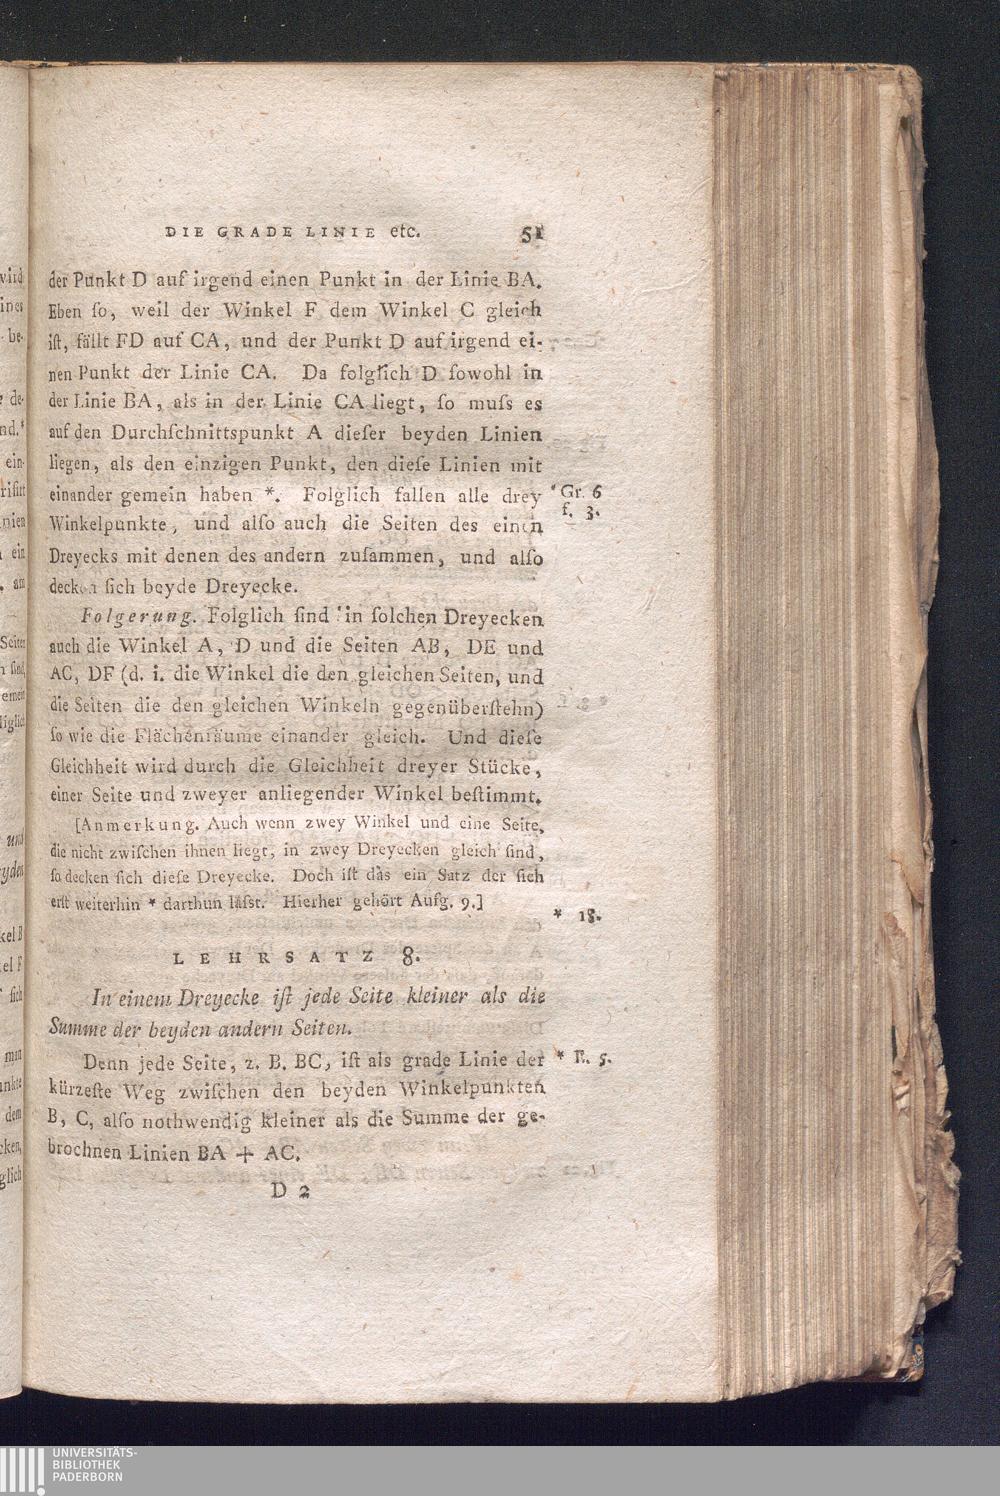 DIE GRADE LINIE etc. 51
der Punkt D auf irgend einen Punkt in der Linie BA.
Eben ſo, weil der Winkel F dem Winkel C gleich
iſt, fällt FD auf CA, und der Punkt D auf irgend ei-
nen Punkt der Linie CA. Da folglich D ſowohl in
der Linie BA, als in der Linie CA liegt, ſo muſs es
auf den Durchſchnittspunkt A dieſer beyden Linien
liegen, als den einzigen Punkt, den dieſe Linien mit
einander gemein haben *. Folglich fallen alle drey
* Gr. 6
f. 3.
Winkelpunkte, und alſo auch die Seiten des einen
Dreyecks mit denen des andern zuſammen, und alſo
decken ſich beyde Dreyecke.
Folgerung. Folglich ſind in ſolchen Dreyecken
auch die Winkel A, D und die Seiten AB, DE und
AC, DF (d. i. die Winkel die den gleichen Seiten, und
die Seiten die den gleichen Winkeln gegenüberſtehn)
ſo wie die Flächenräume einander gleich. Und dieſe
Gleichheit wird durch die Gleichheit dreyer Stücke,
einer Seite und zweyer anliegender Winkel beſtimmt.
[Anmerkung. Auch wenn zwey Winkel und eine Seite,
die nicht zwiſchen ihnen liegt, in zwey Dreyecken gleich ſind,
ſo decken ſich dieſe Dreyecke. Doch iſt das ein Satz der ſich
erſt weiterhin * darthun läſst. Hierher gehört Aufg. 9.]
* 18.
LEHRSATZ 8.
In einem Dreyecke iſt jede Seite kleiner als die
Summe der beyden andern Seiten.
Denn jede Seite, z. B. BC, iſt als grade Linie der
* E. 5.
kürzeſte Weg zwiſchen den beyden Winkelpunkten
B, C, alſo nothwendig kleiner als die Summe der ge-
brochnen Linien BA + AC.
D 2
UNIVERSITÄTS-
BIBLIOTHEK
PADERBORN